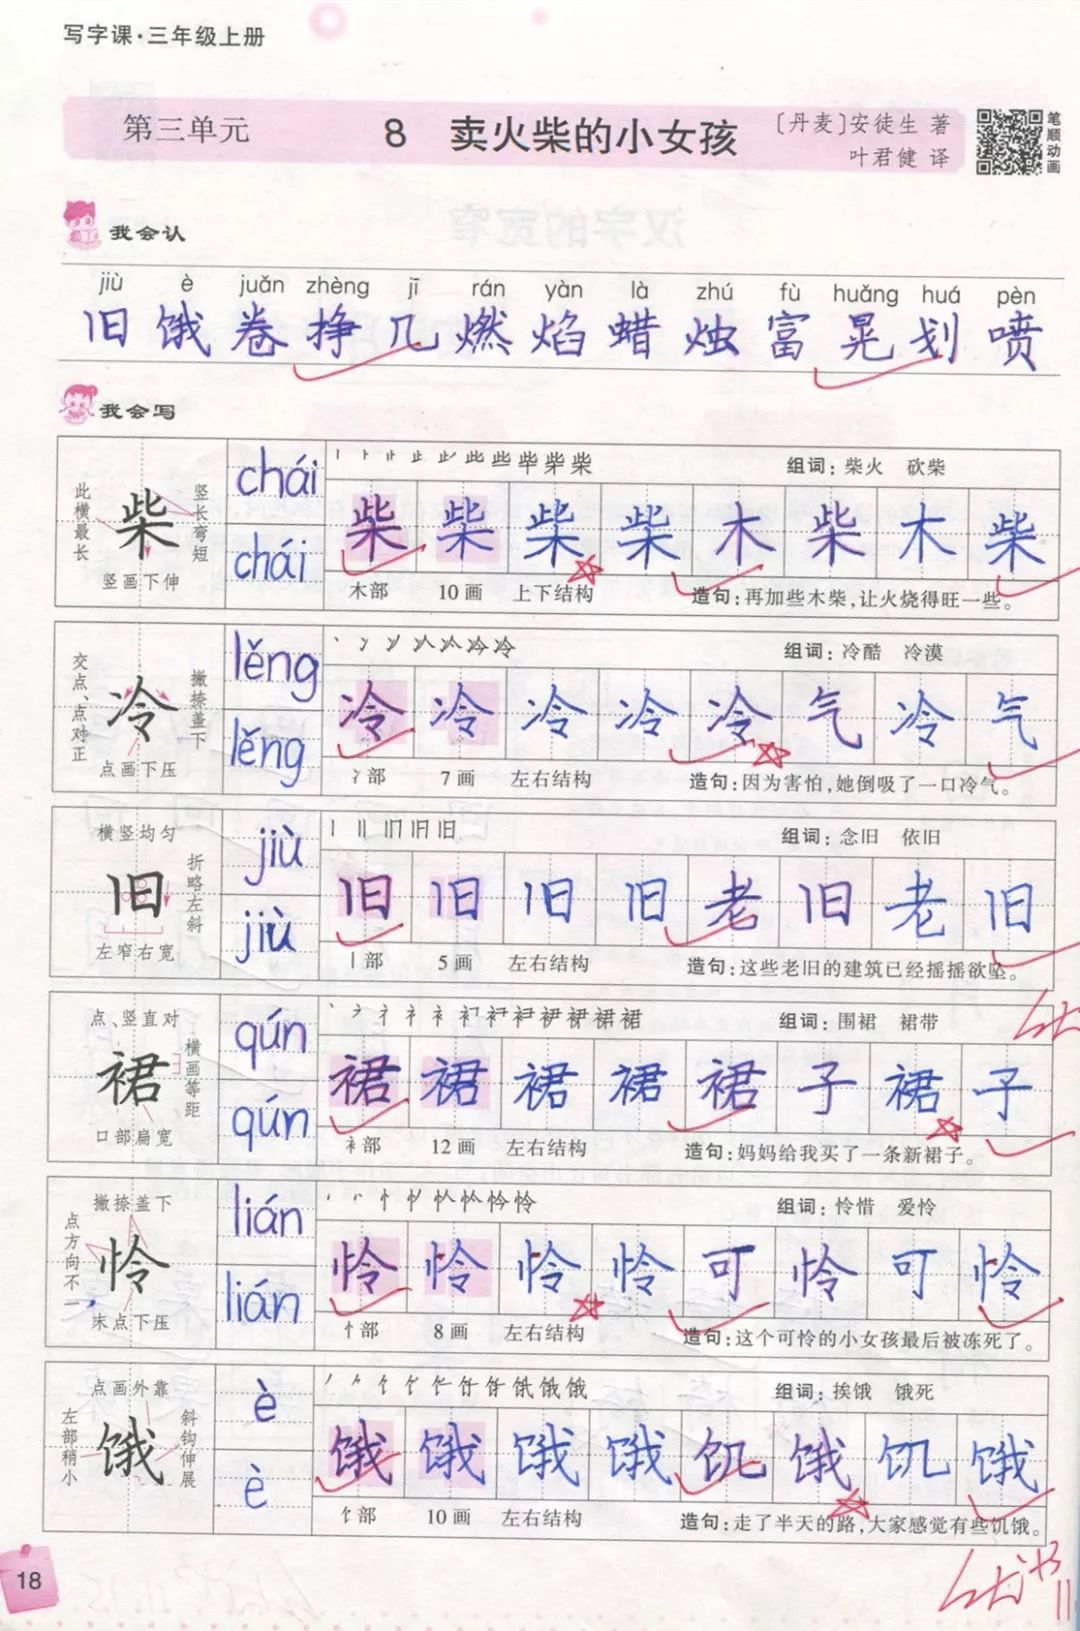 写字课·三年级上册
第三单元
8 卖火柴的小女孩
〔丹麦〕安徒生 著
叶君健 译
笔顺动画
我会认
jiù è juǎn zhèng jī rán yàn là zhú fù huǎng huá pèn
旧 饿 卷 挣 几 燃 焰 蜡 烛 富 晃 划 喷
我会写
此横最长
柴
竖长弯短
竖画下伸
chái
chái
组词：柴火 砍柴
柴 柴 柴 柴 木 柴 木 柴
木部 10画 上下结构 造句：再加些木柴，让火烧得旺一些。
交点、点对正
冷
撇捺盖下
点画下压
lěng
lěng
组词：冷酷 冷漠
冷 冷 冷 冷 冷 气 冷 气
冫部 7画 左右结构 造句：因为害怕，她倒吸了一口冷气。
横竖均匀
旧
折略左斜
左窄右宽
jiù
jiù
组词：念旧 依旧
旧 旧 旧 旧 老 旧 老 旧
丨部 5画 左右结构 造句：这些老旧的建筑已经摇摇欲坠。
点、竖直对
裙
横画等距
口部扁宽
qún
qún
组词：围裙 裙带
裙 裙 裙 裙 裙 子 裙 子
衤部 12画 左右结构 造句：妈妈给我买了一条新裙子。
撇捺盖下
点方向不一
怜
末点下压
lián
lián
组词：怜惜 爱怜
怜 怜 怜 怜 可 怜 可 怜
忄部 8画 左右结构 造句：这个可怜的小女孩最后被冻死了。
点画外靠
左部稍小
饿
斜钩伸展
è
è
组词：挨饿 饿死
饿 饿 饿 饿 饥 饿 饥 饿
饣部 10画 左右结构 造句：走了半天的路，大家感觉有些饥饿。
18